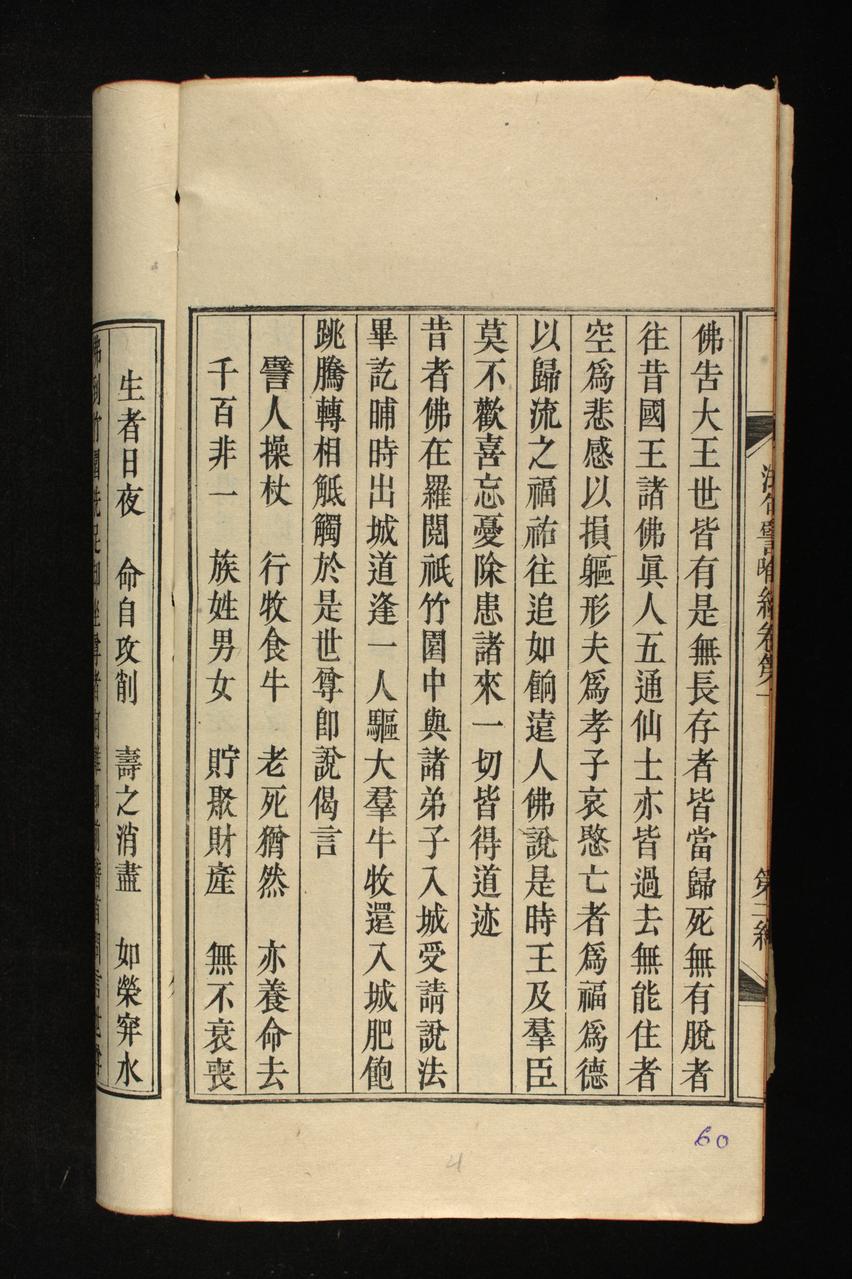 法句譬喻經卷第一
第二紙
佛告大王世皆有是無長存者皆當歸死無有脫者
往昔國王諸佛眞人五通仙士亦皆過去無能住者
空爲悲感以損軀形夫爲孝子哀愍亡者爲福爲德
以歸流之福祐往追如餉遠人佛說是時王及羣臣
莫不歡喜忘憂除患諸來一切皆得道迹
昔者佛在羅閱祇竹園中與諸弟子入城受請說法
畢訖晡時出城道逢一人驅大羣牛牧還入城肥飽
跳騰轉相觝觸於是世尊卽說偈言
譬人操杖　行牧食牛　老死猶然　亦養命去
千百非一　族姓男女　貯聚財產　無不衰喪
生者日夜　命自攻削　壽之消盡　如榮穽水
佛到竹園洗足却坐
60
4